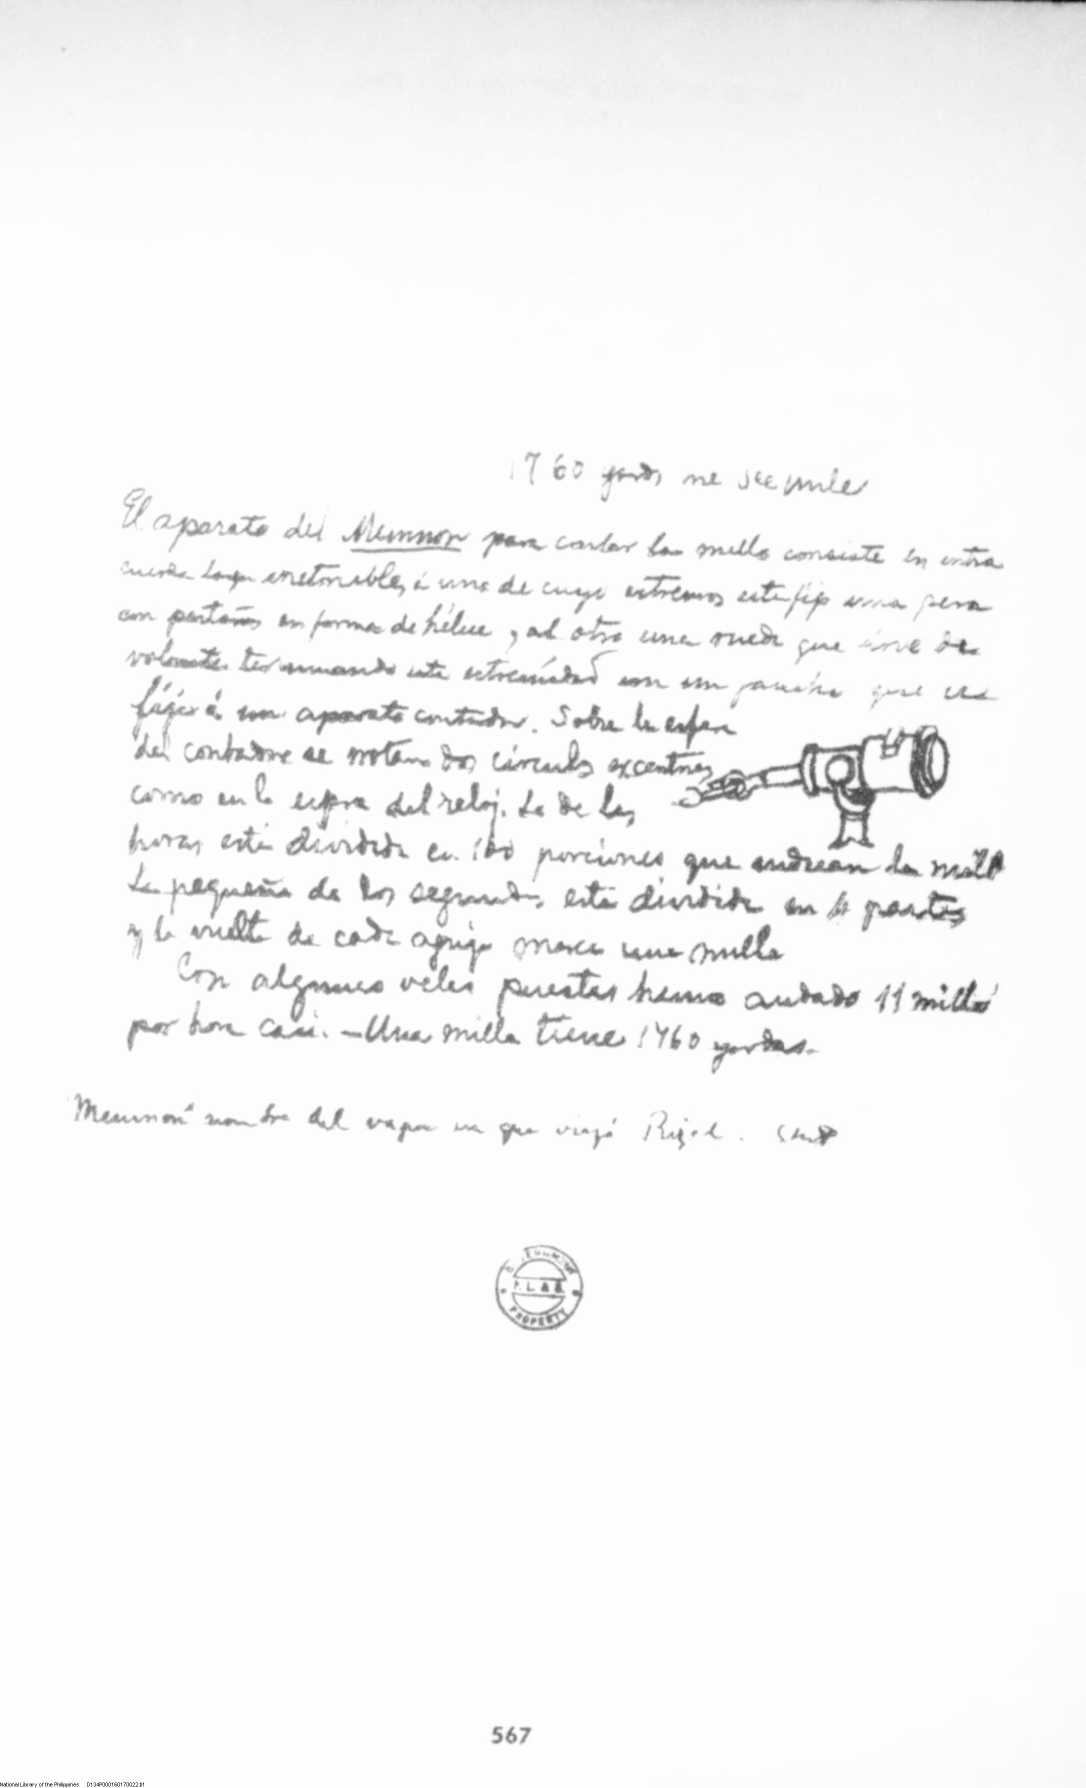 1760 yards
El aparato del Memnon para contar las millas consiste en
cuerda larga á uno de cuyos extremos esta fija una pera
con pestañas en forma de hélice, y al otro una rueda que sirve de
volante terminando esta extremidad con un gancho que se
fija á un aparato contador. Sobre la esfera
del contador se notan dos circulos excentricos
como en la esfera del reloj. La de las
horas está dividida en 100 porciones que indican la milla
La pequeña de los segundos está dividida en 4 partes
y la vuelta de cada aguja marca una milla
Con algunas velas puestas hemos andado 11 millas
por hora casi. — Una milla tiene 1760 yardas.
Memnon" nombre del vapor en que viajó Rizal.
PROPERTY
567
National Library of the Philippines